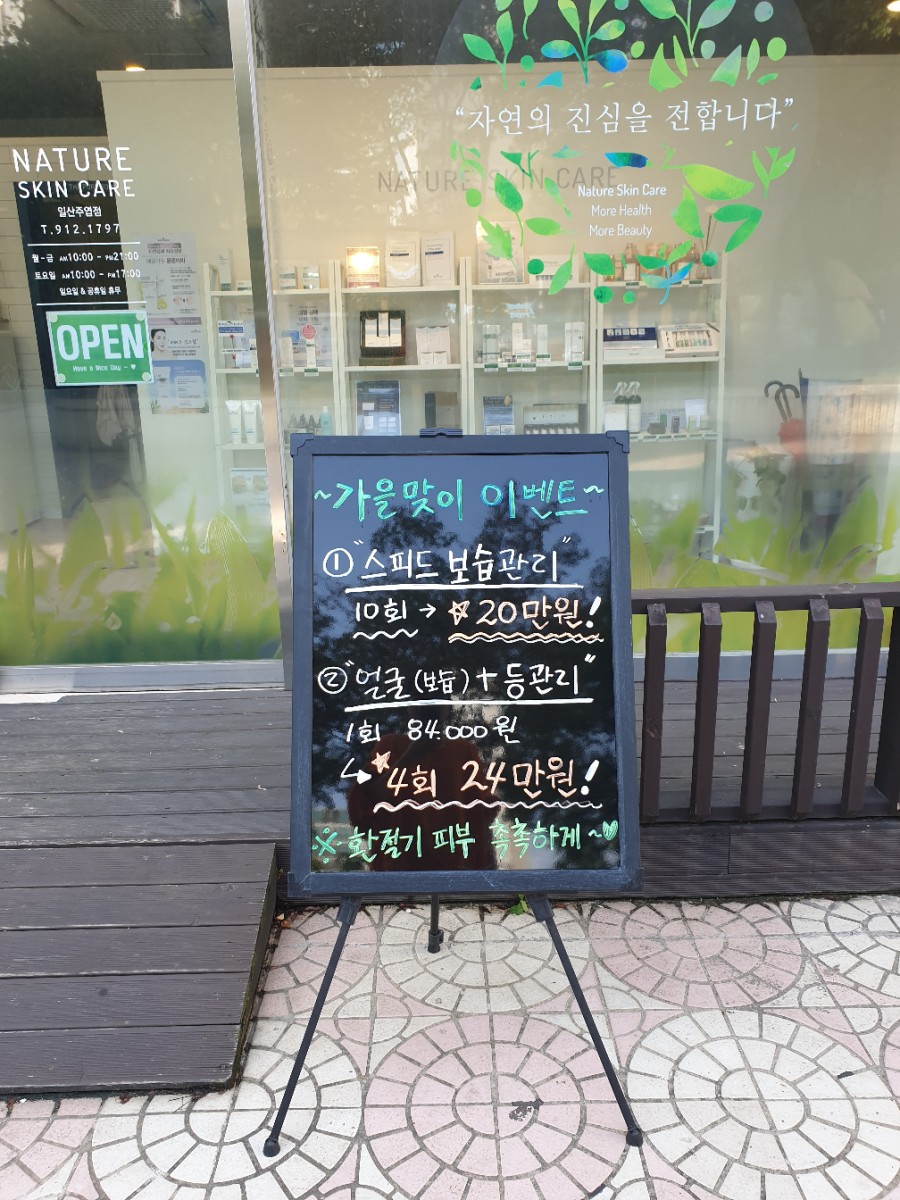 "자연의 진심을 전합니다"
NATURE SKIN CARE
Nature Skin Care
More Health
More Beauty
NATURE
SKIN CARE
일산주엽점
T.912.1797
월-금 AM10:00 - PM21:00
토요일 AM10:00 - PM17:00
일요일 & 공휴일 휴무
OPEN
Have a Nice Day ~ ♥
~가을맞이 이벤트~
① "스피드 보습관리"
10회 → ☆20만원!
② "얼굴(보습)+등관리"
1회 84.000원
↳ ☆4회 24만원!
※환절기 피부 촉촉하게~♥